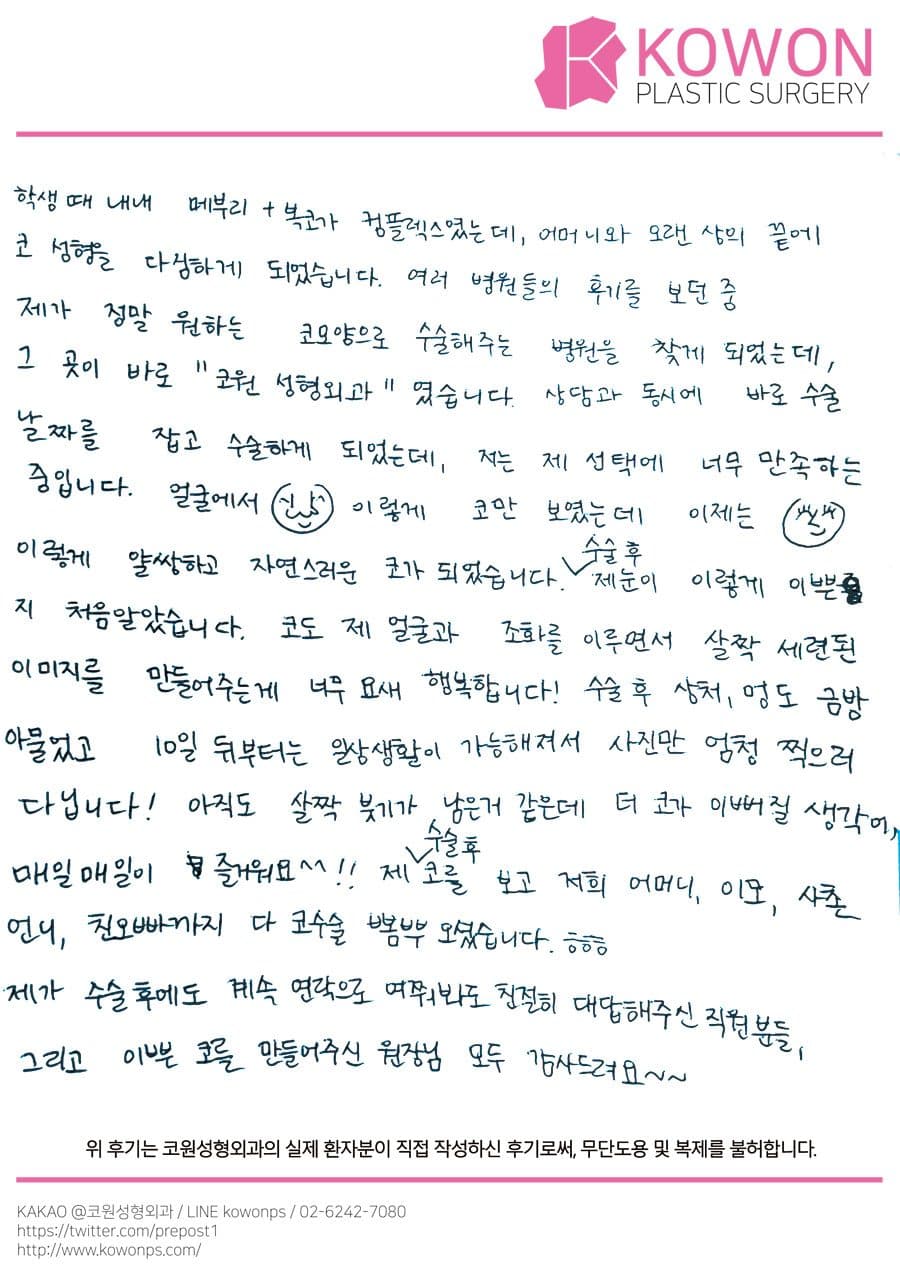 KOWON
PLASTIC SURGERY
학생때 내내 메부리 + 복코가 컴플렉스였는데, 어머니와 오랜 상의 끝에
코 성형을 다짐하게 되었습니다. 여러 병원들의 후기를 보던 중
제가 정말 원하는 코모양으로 수술해주는 병원을 찾게 되었는데,
그 곳이 바로 "코원 성형외과" 였습니다. 상담과 동시에 바로 수술
날짜를 잡고 수술하게 되었는데, 저는 제 선택에 너무 만족하는
중입니다. 얼굴에서 이렇게 코만 보였는데 이제는
이렇게 얄쌍하고 자연스러운 코가 되었습니다. 수술 후 제눈이 이렇게 이쁜
지 처음알았습니다. 코도 제 얼굴과 조화를 이루면서 살짝 세련된
이미지를 만들어주는게 너무 요새 행복합니다! 수술 후 상처, 멍도 금방
아물었고 10일 뒤부터는 일상생활이 가능해져서 사진만 엄청 찍으러
다닙니다! 아직도 살짝 붓기가 남은거 같은데 더 코가 이뻐질 생각에,
매일매일이 즐거워요^^!! 제 수술후 코를 보고 저희 어머니, 이모, 사촌
언니, 친오빠까지 다 코수술 뽐뿌 오셨습니다. ㅎㅎㅎ
제가 수술후에도 계속 연락으로 여쭤봐도 친절히 대답해주신 직원분들,
그리고 이쁜 코를 만들어주신 원장님 모두 감사드려요~~
위 후기는 코원성형외과의 실제 환자분이 직접 작성하신 후기로써, 무단도용 및 복제를 불허합니다.
KAKAO @코원성형외과 / LINE kowonps / 02-6242-7080
https://twitter.com/prepost1
http://www.kowonps.com/